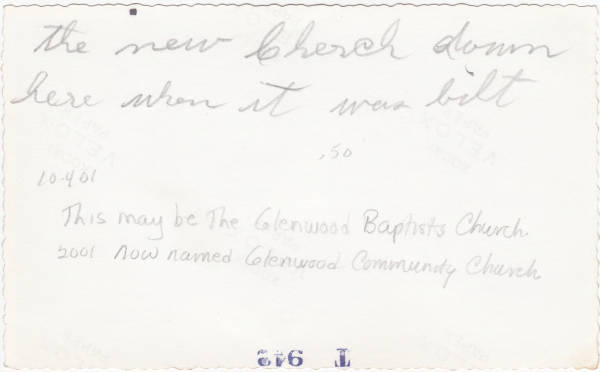 the new Cherch down
here when it was bilt
.50
10-4 01
This may be The Glenwood Baptists Church.
2001 Now named Glenwood Community Church